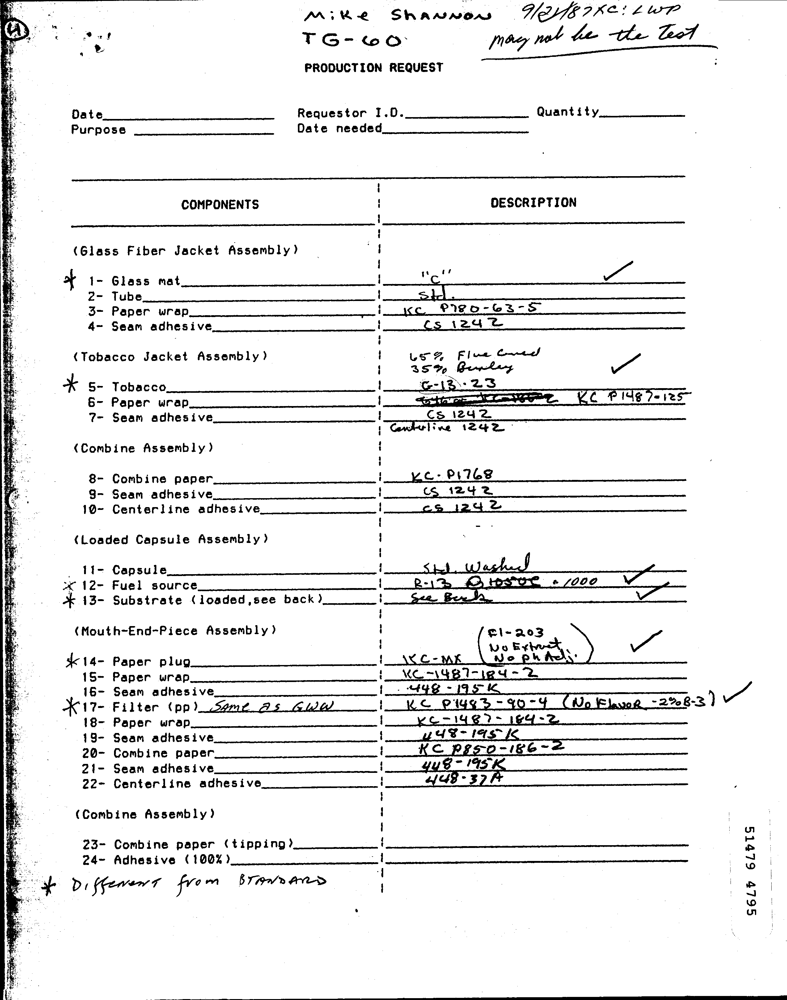 4
Mike SHANNON
TG-60
may not be the Test
PRODUCTION REQUEST
Date Requestor I.D. Quantity
Purpose Date needed
COMPONENTS DESCRIPTION
(Glass Fiber Jacket Assembly)
* 1- Glass mat "C" ✓
2- Tube Std.
3- Paper wrap KC P780-63-5
4- Seam adhesive CS 1242
(Tobacco Jacket Assembly) 65% Flue Cured
35% Burley ✓
* 5- Tobacco G-13-23
6- Paper wrap KC P1487-125
7- Seam adhesive CS 1242
Centerline 1242
(Combine Assembly)
8- Combine paper KC-P1768
9- Seam adhesive CS 1242
10- Centerline adhesive CS 1242
(Loaded Capsule Assembly)
11- Capsule Std Washed
* 12- Fuel source R-13 .1000 ✓
* 13- Substrate (loaded,see back) See Back ✓
(Mouth-End-Piece Assembly) (F1-203
No Extract ✓
* 14- Paper plug KC-MX No ph Adj.)
15- Paper wrap KC-1487-184-2
16- Seam adhesive 448-195K
* 17- Filter (pp) Same as GWW KC P1483-90-4 (No Flavor -2%B-3) ✓
18- Paper wrap KC-1487-184-2
19- Seam adhesive 448-195K
20- Combine paper KC P850-186-2
21- Seam adhesive 448-195K
22- Centerline adhesive 448-37A
(Combine Assembly)
23- Combine paper (tipping)
24- Adhesive (100%)
* Different from STANDARD
51479 4795